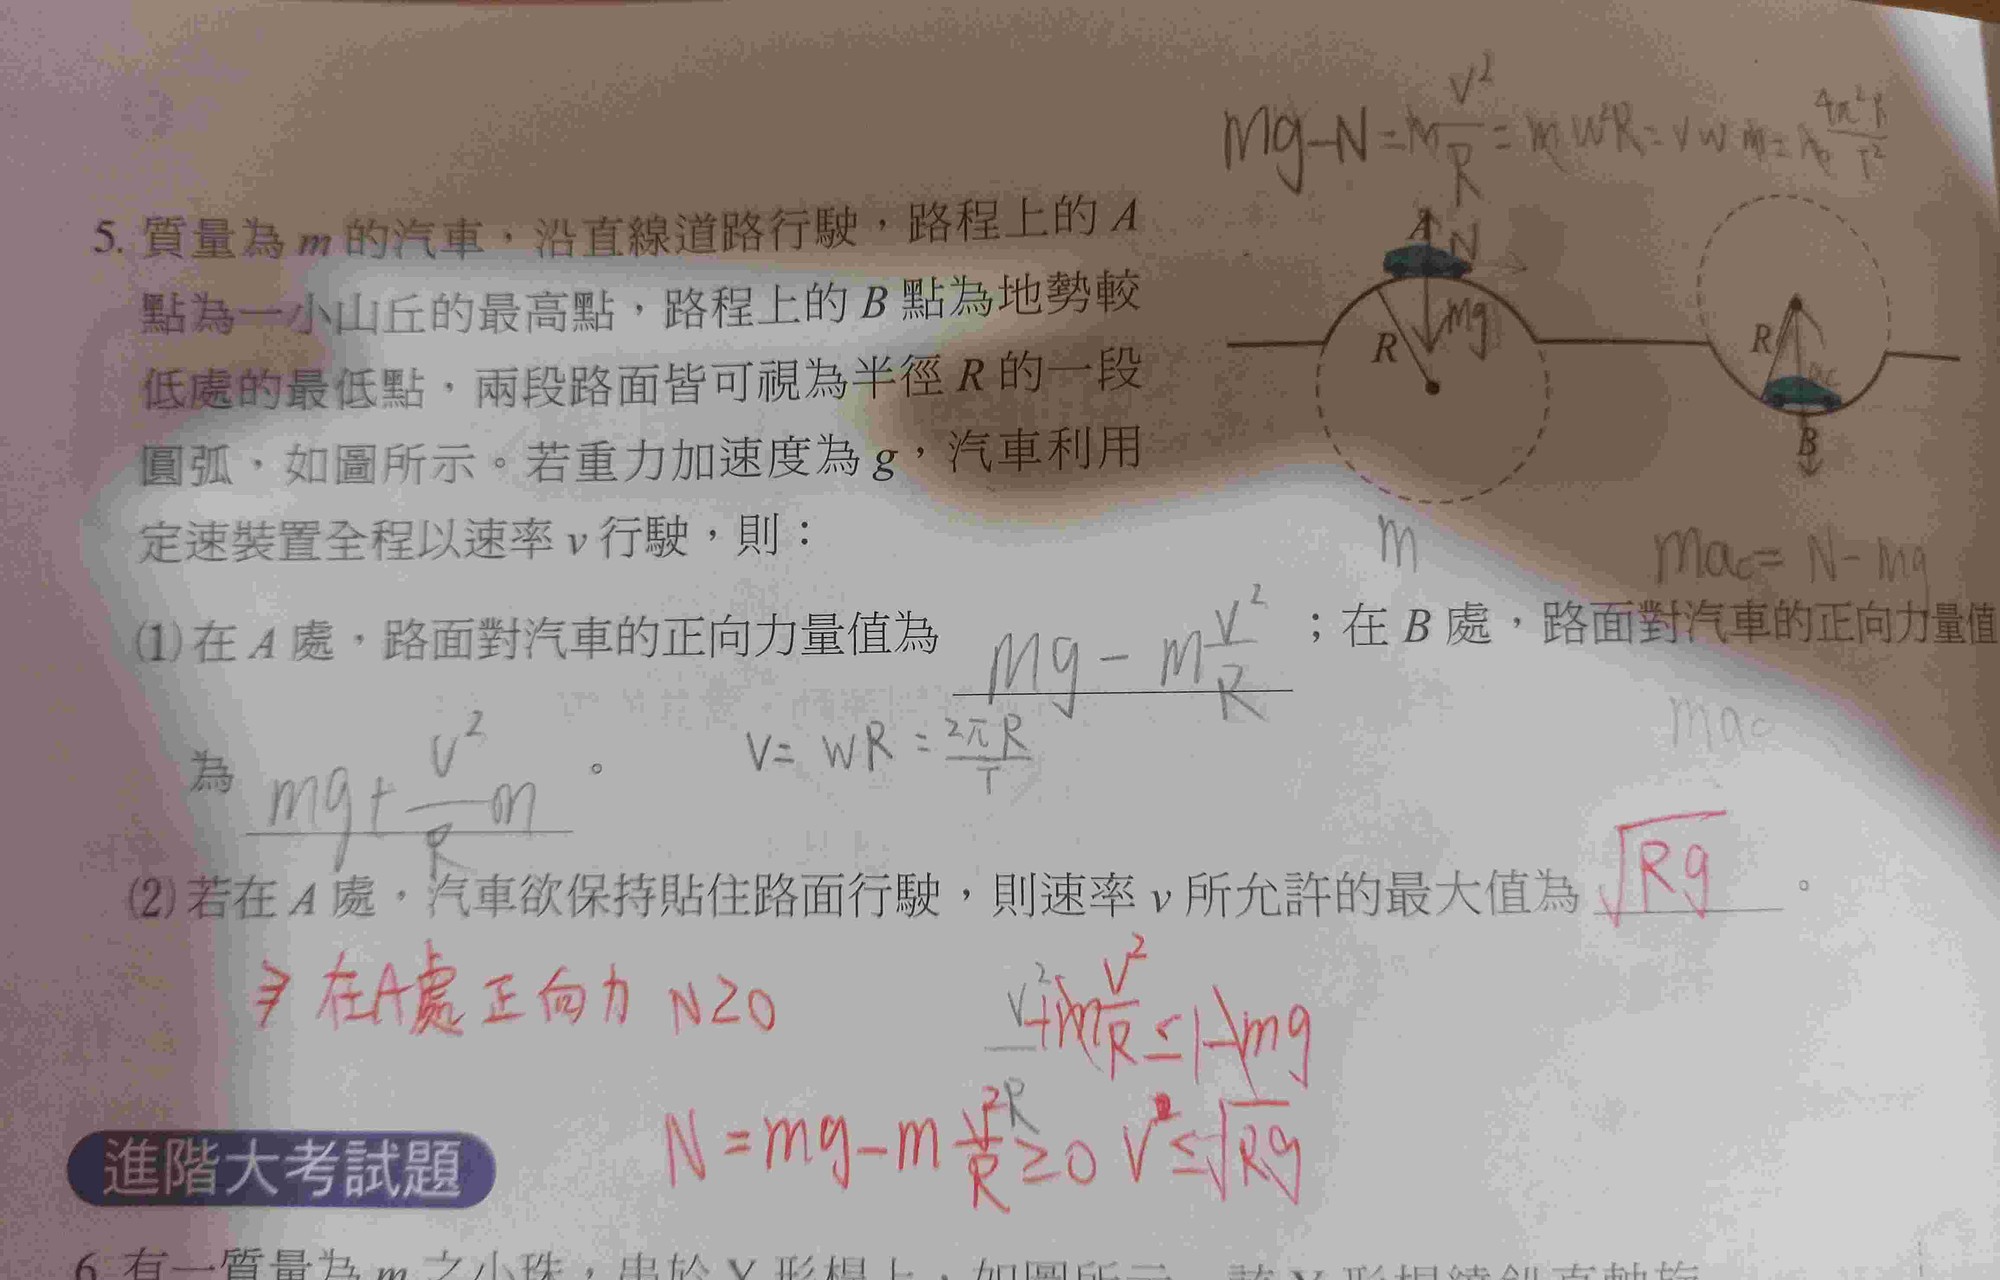 mg-N=m\frac{v^2}{R}=mW^2R=vwm=m\frac{4π^2R}{T^2}
5. 質量為 m 的汽車，沿直線道路行駛，路程上的 A
點為一小山丘的最高點，路程上的 B 點為地勢較
低處的最低點，兩段路面皆可視為半徑 R 的一段
圓弧，如圖所示。若重力加速度為 g，汽車利用
定速裝置全程以速率 v 行駛，則：
A
N
mg
R
R
ac
B
m
mac= N-mg
(1) 在 A 處，路面對汽車的正向力量值為 mg-m\frac{v^2}{R} ；在 B 處，路面對汽車的正向力量值
mac
為 mg+\frac{v^2}{R}m 。
V= WR = \frac{2πR}{T}
(2) 若在 A 處，汽車欲保持貼住路面行駛，則速率 v 所允許的最大值為 √Rg 。
⇒ 在A處 正向力 N≥0
m\frac{v^2}{R}≤mg
N=mg-m\frac{v^2}{R}≥0 V≤√Rg
進階大考試題
6. 有一質量為 m 之小珠，串於 Y 形桿上，如圖所示，該 Y 形桿繞鉛直軸旋